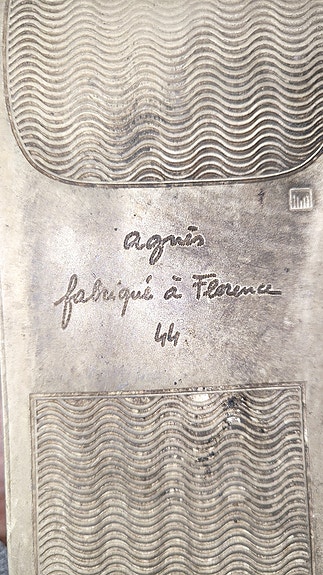 agnès
fabriqué à Florence
44